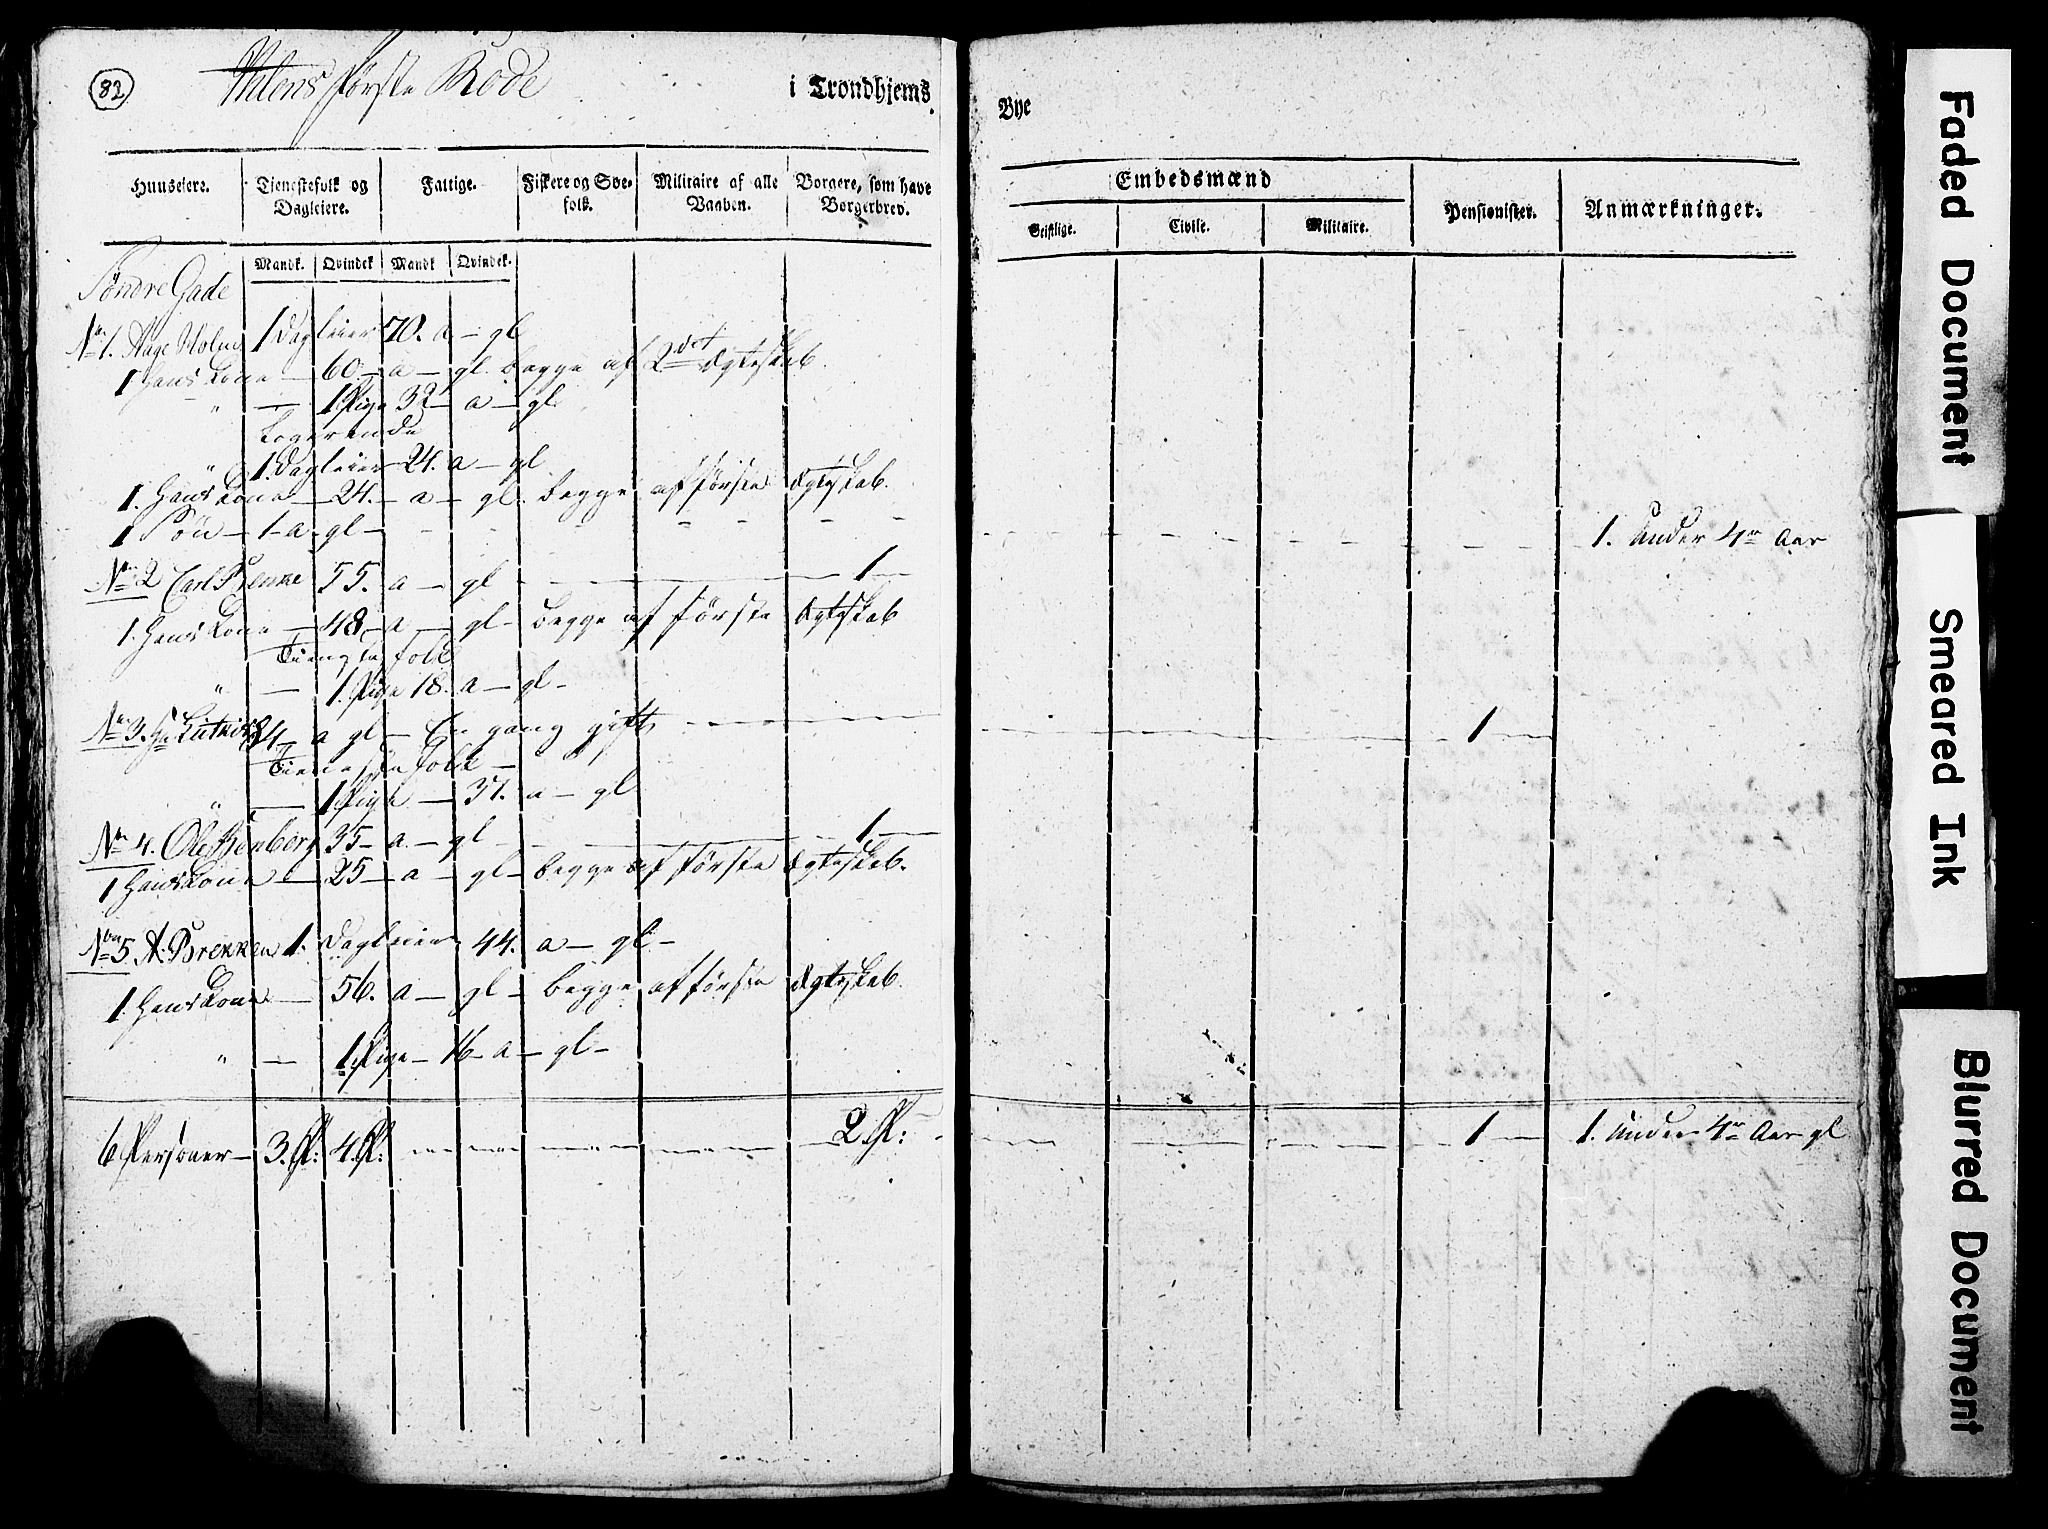 82
Ihlens første Rode i Trondhjems Bye
Huuseiere. Tjenestefolk og Dagleiere. Fattige. Fiskere og Søefolk. Militaire af alle Vaaben. Borgere, som have Borgerbrev. Embedsmænd Pensionister. Anmærkninger.
Geistlige. Civile. Militaire.
Mandk. Qvindek Mandk Qvindek.
Søndre Gade
No 1. Aage Holm 1 Dagleier 70. a — gl
1 hans Kone — 60 — a — gl. begge af 2det Ægteskab
" — 1 Pige 32 — a — gl.
Logerende
" 1. Dagleier 24. a — gl
1. hans Kone — 24. — a — gl. begge af første Ægteskab.
1 Søn — 1 — a — gl — 1. under 4re Aar
No 2 Carl 55. a — gl 1
1. hans Kone — 48 — a — gl — begge af første Ægteskab
Tienestefolk
" — 1. Pige 18. a — gl —
No 3. 84 — a gl — En gang gift 1
Tienestefolk —
" — 1 Pige — 37. a — gl
No 4. Ole 35 — a — gl 1
1 hans Kone — 25 — a — gl — begge af første Ægteskab.
No 5 A. Brekken 1. Dagleier 44. a — gl —
1. hans Kone — 56. a — gl — begge af første Ægteskab.
" — 1 Pige — 16 — a — gl —
6 Personer — 3. P: 4. P: 2 P: 1 1. under 4re Aar gl
Faded Document
Smeared Ink
Blurred Document